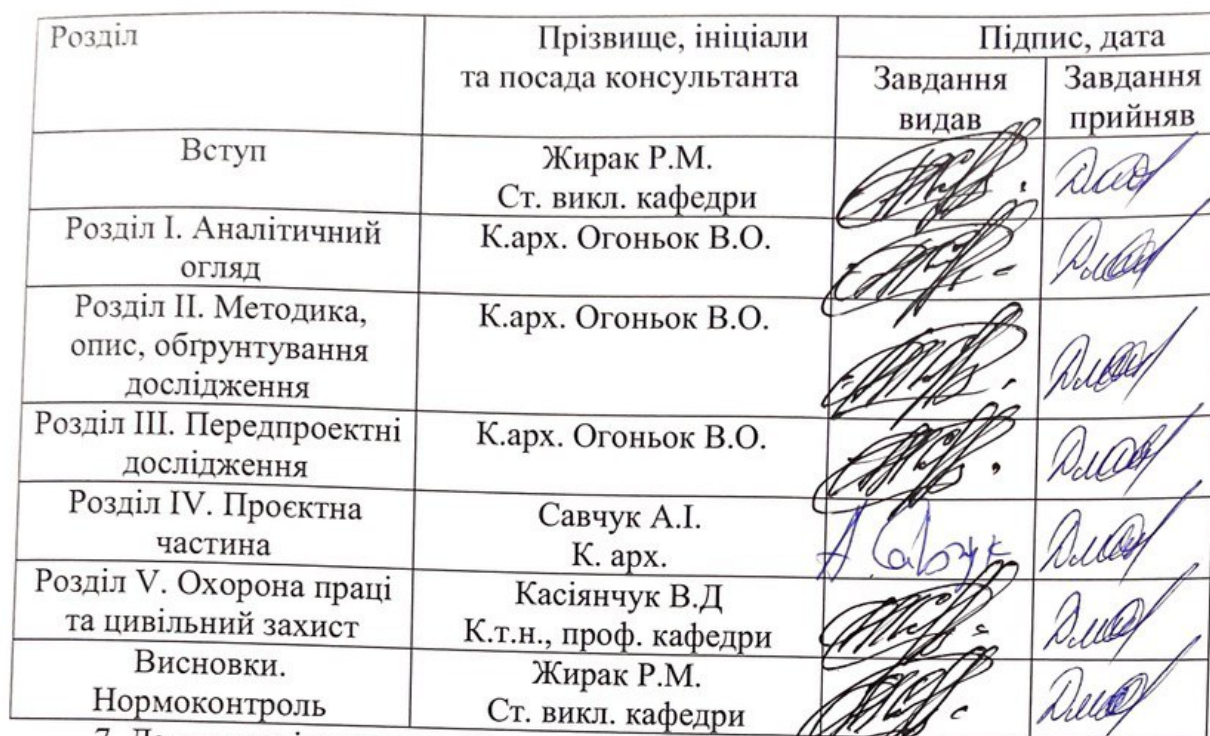 Розділ
Прізвище, ініціали
та посада консультанта
Підпис, дата
Завдання
видав
Завдання
прийняв
Вступ
Жирак Р.М.
Ст. викл. кафедри
Розділ І. Аналітичний
огляд
К.арх. Огоньок В.О.
Розділ ІІ. Методика,
опис, обґрунтування
дослідження
К.арх. Огоньок В.О.
Розділ ІІІ. Передпроектні
дослідження
К.арх. Огоньок В.О.
Розділ IV. Проєктна
частина
Савчук А.І.
К. арх.
А. Савчук
Розділ V. Охорона праці
та цивільний захист
Касіянчук В.Д
К.т.н., проф. кафедри
Висновки.
Нормоконтроль
Жирак Р.М.
Ст. викл. кафедри
7.